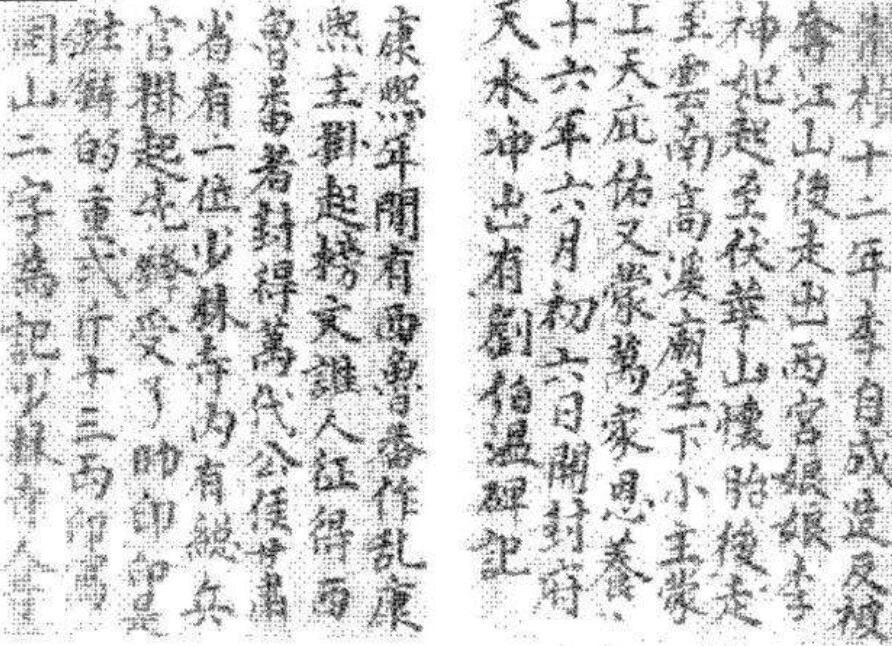 十二年李自成造反
奪江山後走出西宮娘娘李
神妃起至伏華山懷胎後走
至雲南高溪廟生下小主蒙
上天庇佑又蒙萬家恩養、
十六年六月初六日開封府
天水冲出有劉伯溫碑記
康熙年間有西魯番作乱康
熙主起榜文誰人征得西
魯番者封得萬代公侯甘肅
省有一位少林寺内有總兵
官掛起先鋒受了帥印印是
鑄的重弍斤十三両印寫
山二字為記少林寺